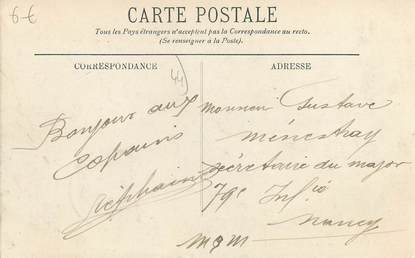 6-€
CARTE POSTALE
Tous les Pays étrangers n'acceptent pas la Correspondance au recto.
(Se renseigner à la Poste).
CORRESPONDANCE
44
ADRESSE
Bonjour aux
copains
Stéphane
Monsieur Gustave
Ménestray
secrétaire du major
79e Inf ie
Nancy
M & M